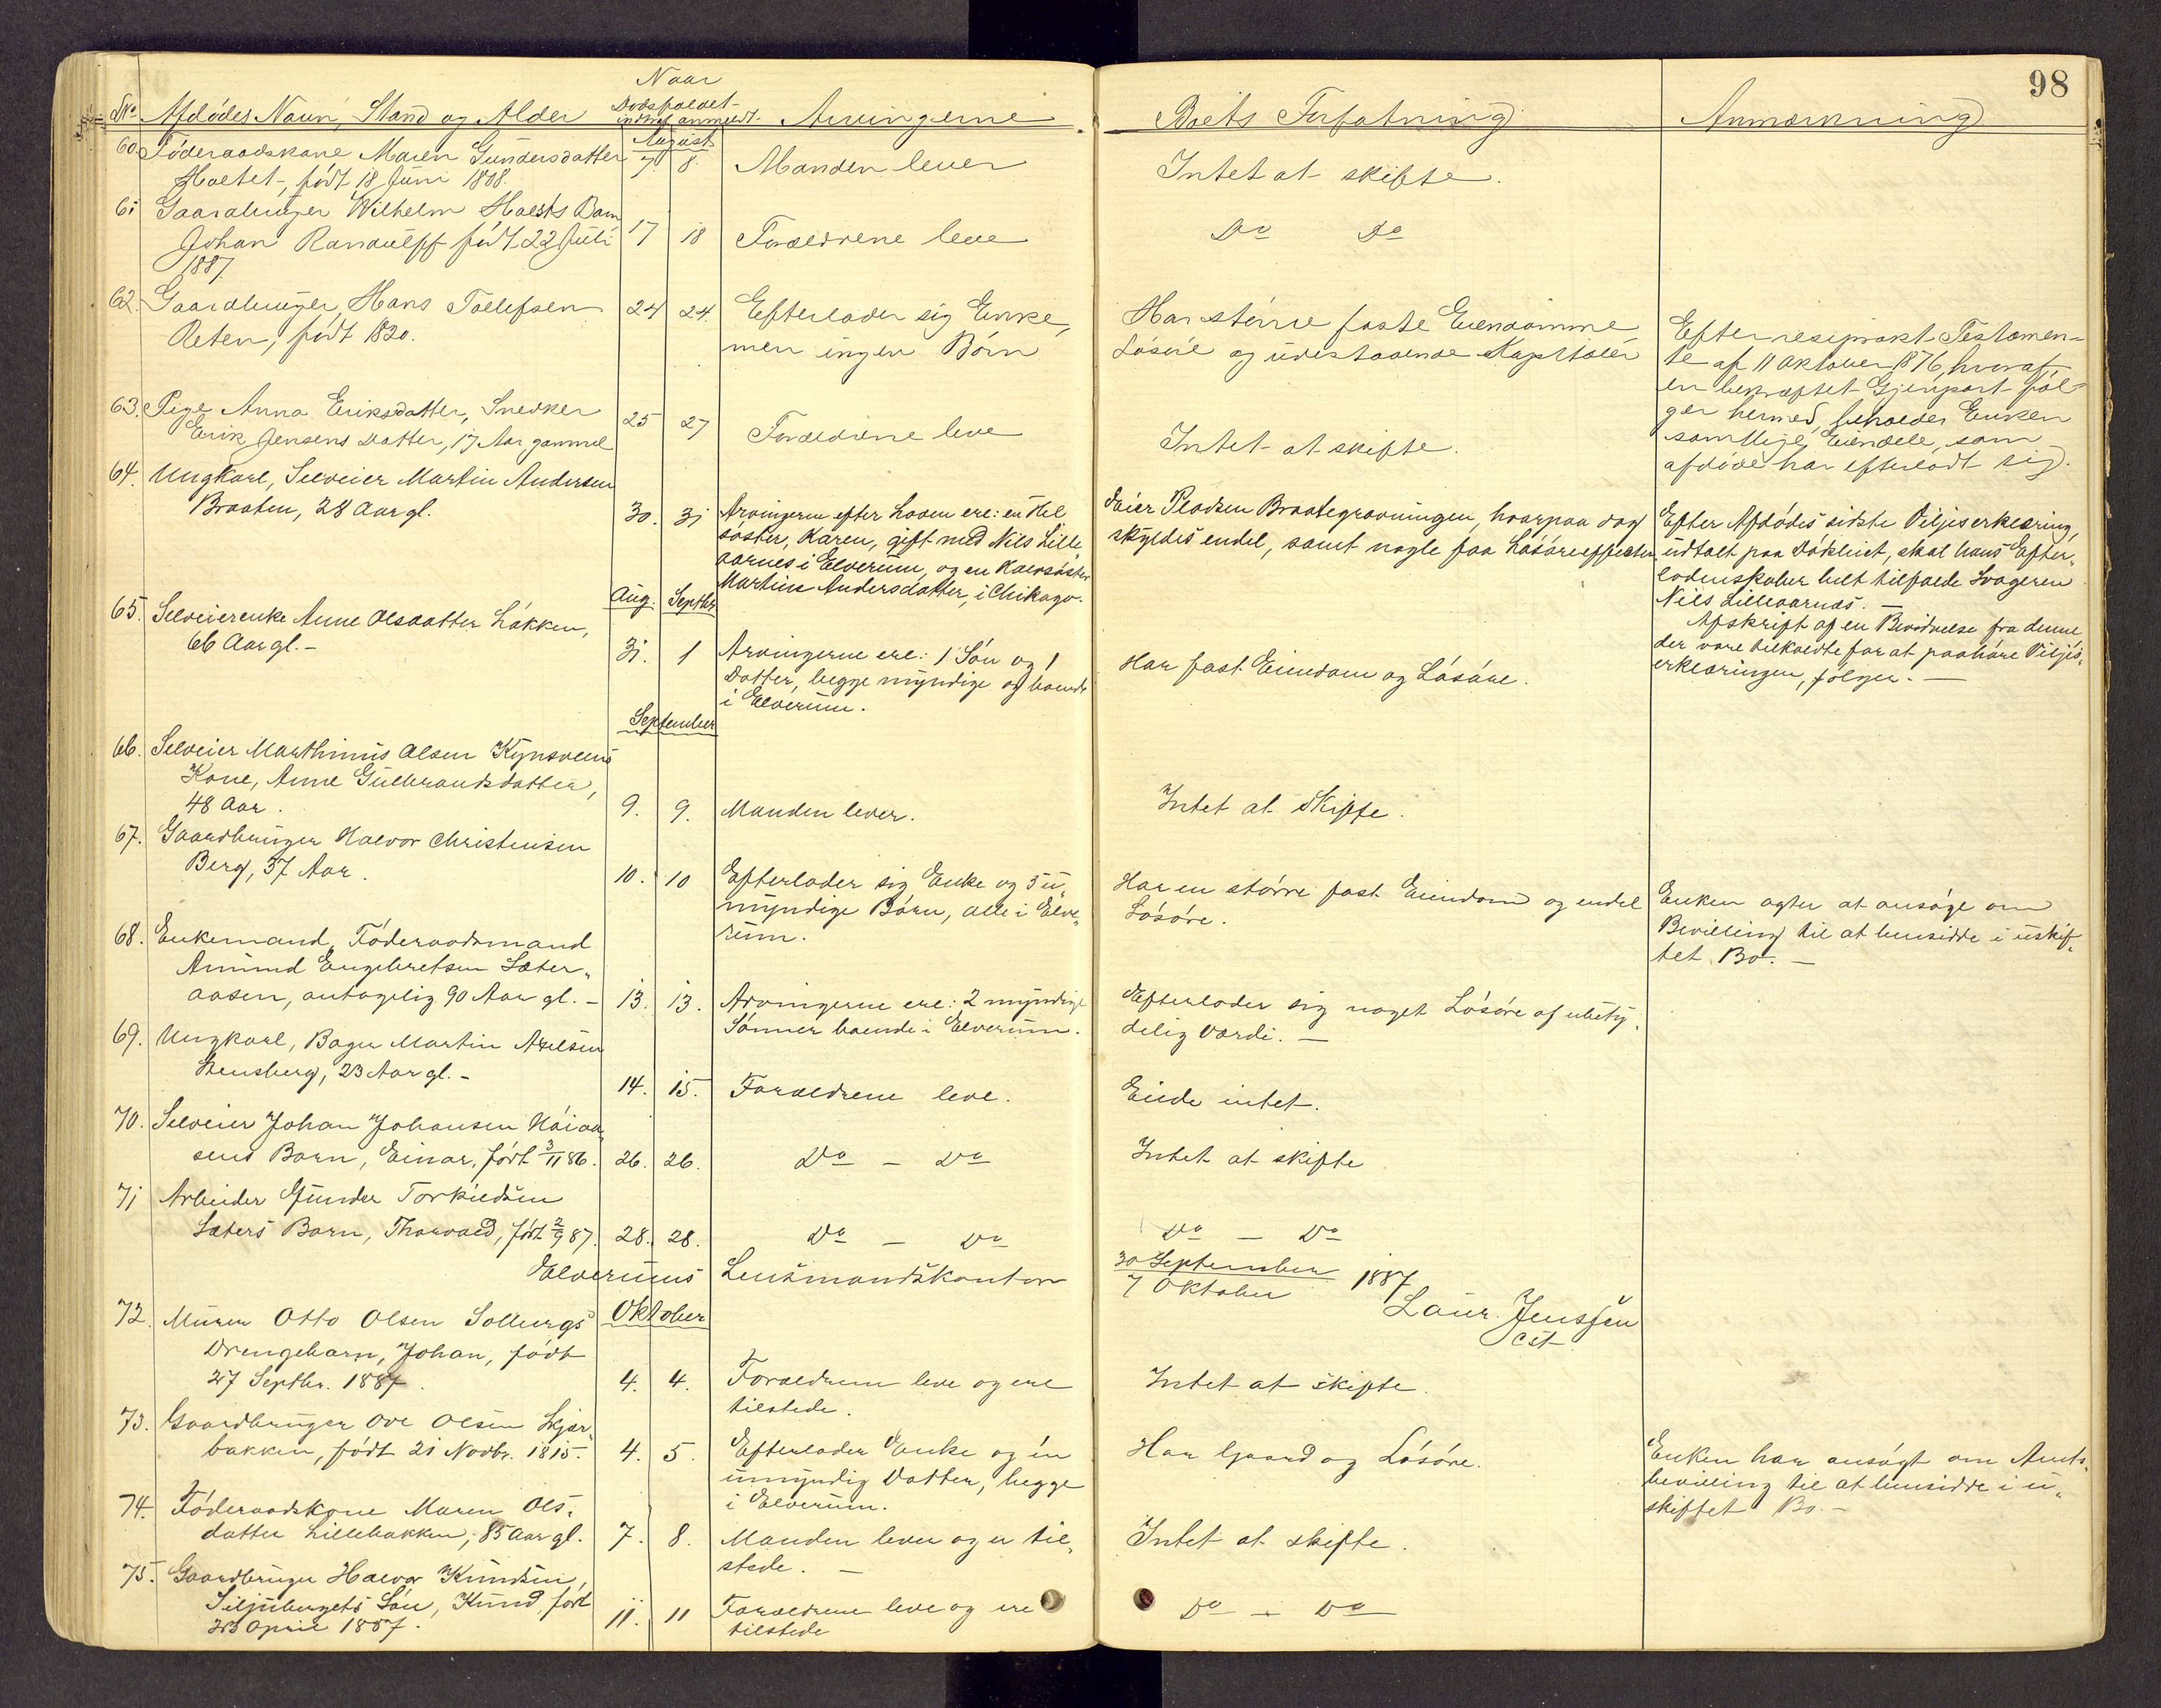 98
No Afdödes Navn, Stand og Alder
Naar
Dödsfaldet
indtraf anmeldt.
Arvingerne
Boets Forfatning
Anmærkning
August
60. Föderaadskone Maren Gundersdatter 7 8. Manden lever Intet at skifte.
født 18 Juni 1808.
61 Gaardbruger Wilhelm Barn
Johan født 22 Juli 17 18 Forældrene leve Do Do
1887.
62. Gaardbruger Hans Tollefsen 24 24. Efterlader sig Enke, Har større faste Eiendomme
født 1830. men ingen Børn Løsøre og udestaaende Kapitaler
Efter resiprokt Testamen=
te af 11 Oktober 1876, hvoraf
en bekræftet Gjenpart føl=
ger hermed, beholder Enken
samtlige Eiendele, som
afdøde har efterladt sig.
63. Pige Anna Eriksdatter, Snedker 25 27 Forældrene leve Intet at skifte.
Erik Jensens Datter, 17 Aar gammel
64. Ungkarl, Selveier Martin Andersen
Braaten, 28 Aar gl. 30. 31
Arvingerne efter Loven ere: en Hel
søster, Karen, gift med Nils Lille„
aarnes i Elverum, og en Halvsøster
Martine Andersdatter, i Chikago.
Eier Pladsen Braategravningen, hvorpaa dog
skyldes endel, samt nogle faa Løsøreeffecter
Efter Afdødes sidste Viljeserklæring,
udtalt paa Dødsleiet, skal hans Efter„
ladenskaber helt tilfalde Svogeren
Nils Lilleaarnes. —
Afskrift af en Bevidnelse fra denne
der vare tilkaldte for at paahøre Viljes„
erklæringen, følger. —
Aug. Septbr
65. Selveierenke Anne Olsdatter Løkken,
66 Aar gl. - 31. 1
Arvingerne ere: 1 Søn og 1
Datter, begge myndige og boende
i Elverum.
Har fast Eiendom og Løsøre.
September
66. Selveier Marthinus Olsen
Kone, Anne Gulbrandsdatter,
48 Aar. 9. 9. Manden lever. Intet at skifte.
67. Gaardbruger Halvor Christensen
Berg, 37 Aar. 10. 10
Efterlader sig Enke og 5 u„
myndige Børn, alle i Elve„
rum.
Har en større fast Eiendom og endel
Løsøre.
Enken agter at ansøge om
Bevilling til at hensidde i uskif„
tet Bo. —
68. Enkemand, Föderaadsmand
Amund Engebretsen Sæter„
aasen, antagelig 90 Aar gl. - 13. 13.
Arvingerne ere: 2 myndige
Sønner boende i Elverum.
Efterlader sig noget Løsøre af ubety„
delig Værdi. —
69. Ungkarl, Bager Martin Axelsen
Stensberg, 23 Aar gl. - 14. 15. Forældrene leve. Eiede intet.
70. Selveier Johan Johansen Høiaa„
sens Barn, Einar, født 3/11 86. 26. 26. Do — Do Intet at skifte
71 Arbeider Gunder Torkildsen
Sæters Barn, Thorvald, født 2/9 87. 28. 28. Do — Do Do — Do
Elverums Lensmandskontor 30 September / 7 Oktober 1887
Laur. Jenssen
cst
Oktober
72. Murer Otto Olsen Solbergs
Drengebarn, Johan, født
27 Septbr. 1887. 4. 4. Forældrene leve og ere
tilstede. Intet at skifte.
73. Gaardbruger Ove Olsen Skjær„
bakken, født 21 Novbr. 1815. 4. 5.
Efterlader Enke og én
umyndig Datter, begge
i Elverum.
Har Gaard og Løsøre.
Enken har ansøgt om Amts„
bevilling til at hensidde i u„
skiftet Bo. —
74. Föderaadskone Maren Ols„
datter Lillebakken, 85 Aar gl. 7. 8. Manden lever og er til„
stede. — Intet at skifte.
75. Gaardbruger Halvor Knudsen,
Siljubergets Søn, Knud, født
23 April 1887. 11. 11 Forældrene leve og ere
tilstede Do — Do